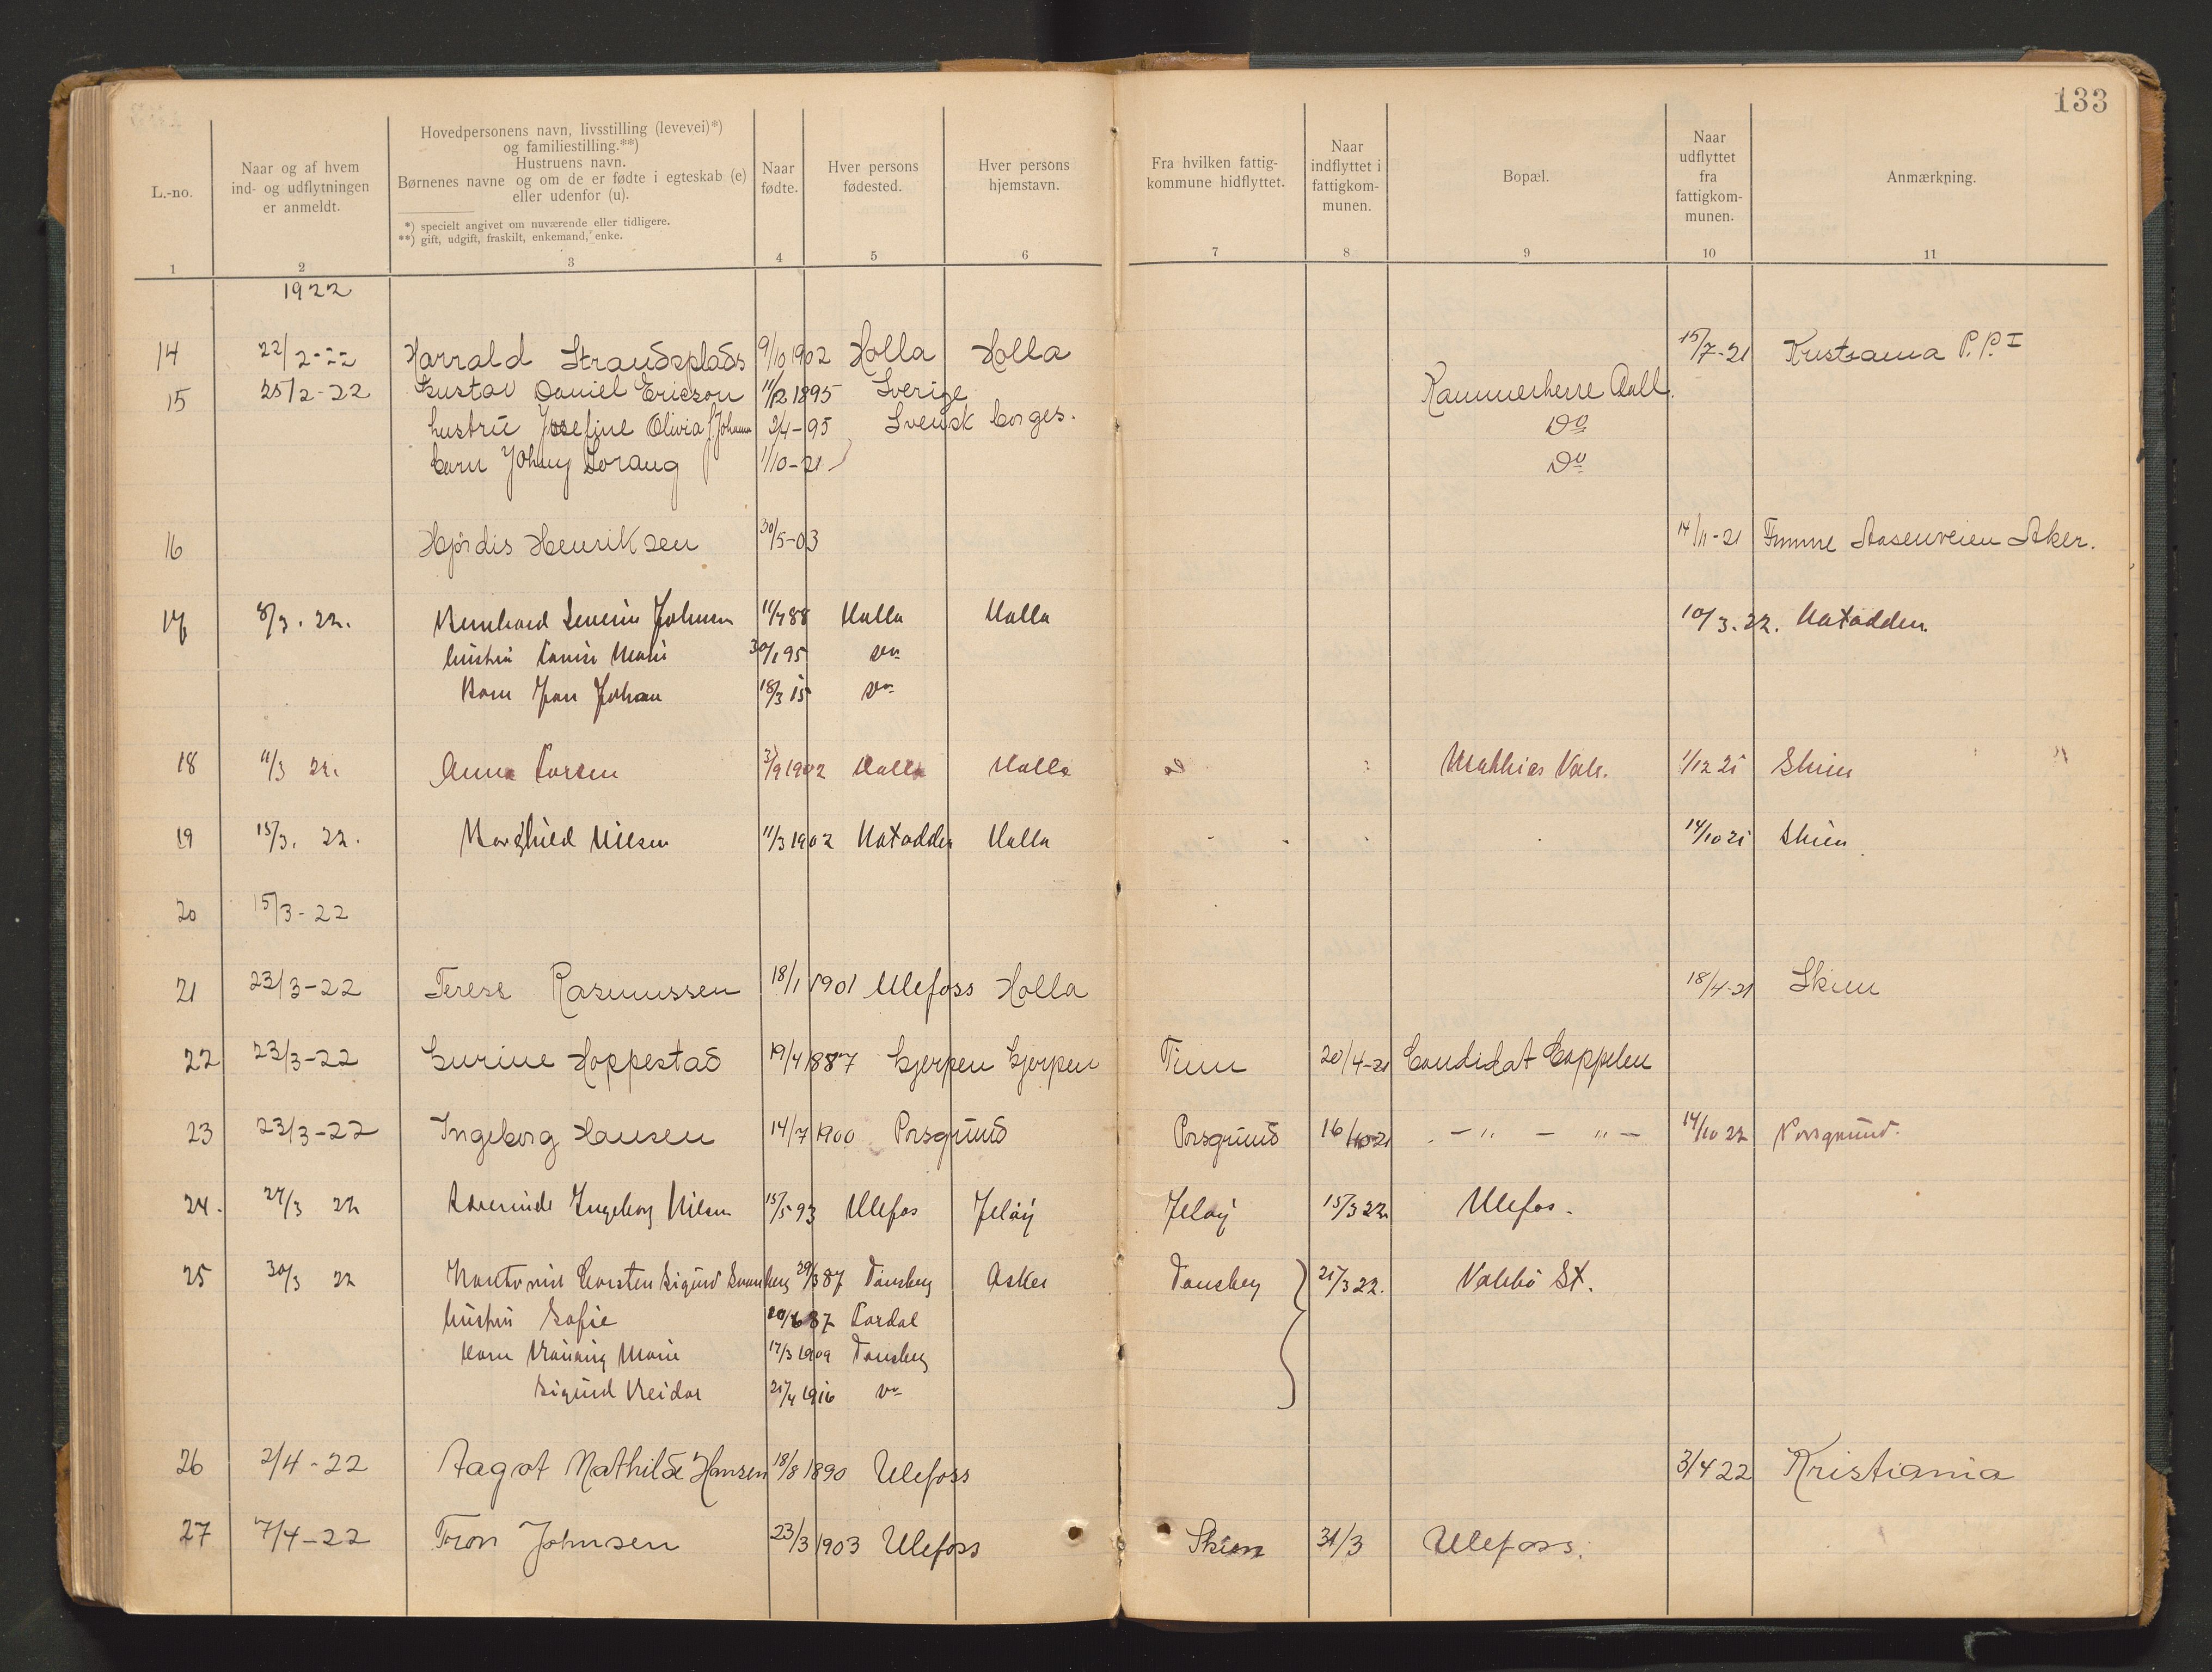 133
L.-no.
Naar og af hvem ind- og udflytningen er anmeldt.
Hovedpersonens navn, livsstilling (levevei)*) og familiestilling.**) Hustruens navn. Børnenes navne og om de er fødte i egteskab (e) eller udenfor (u).
*) specielt angivet om nuværende eller tidligere.
**) gift, udgift, fraskilt, enkemand, enke.
Naar fødte.
Hver persons fødested.
Hver persons hjemstavn.
Fra hvilken fattigkommune hidflyttet.
Naar indflyttet i fattigkommunen.
Bopæl.
Naar udflyttet fra fattigkommunen.
Anmærkning.
1 2 3 4 5 6 7 8 9 10 11
1922
14 22/2-22 Harrald Strandsplads 9/10 1902 Holla Holla 15/7-21 Kristiania P.P.I
15 25/2-22 Gustav Daniel Ericson 11/12 1895 Sverige Kammerherre Aall.
hustru Josefine Olivia f. Johans 2/4-95 Svensk borges. Do
barn Johny Gorang 1/10-21 Do
16 Hjördis Henriksen 30/5-03 14/11-21 Aasenveien Aker.
17 8/3. 22. Bernhard Severin Johnsen 11/7 88 Holla Holla 10/3. 22. Notodden.
hustru Louise Marie 30/1 95 Do
Barn Jon Johan 18/3 15 Do
18 11/3 22. Anna Larsen 3/9 1902 Holla Holla Mathias Vale. 1/12 21 Skien
19 15/3. 22. Borghild Nilsen 11/3 1902 Notodden Holla 14/10 21 Skien
20 15/3-22
21 23/3-22 Terese Rasmussen 18/1 1901 Ulefoss Holla 18/4-21 Skien
22 23/3-22 Gurine Hoppestad 19/4 1887 Gjerpen Gjerpen Tinn 20/4-21 Candidat Cappelen
23 23/3-22 Ingeborg Hansen 14/7 1900 Porsgrund Porsgrund 16/10-21 - " - " - 14/10 22 Porsgrund.
24. 27/3 22 Ingeborg Nilsen 15/5 93 Ulefos Jeløy Jeløy 15/3 22 Ulefos.
25 30/3 22 Kontorist Carsten Sigurd Svanberg 29/3 87 Tønsberg Asker Tønsberg 21/3 22. Valebö St.
hustru Sofie 20/6 87 Lardal
barn Marie 17/3 1909 Tønsberg
Sigurd Reidar 21/4 1916 Do
26 2/4-22 Aagot Mathilde Hansen 18/8 1890 Ulefoss 3/4 22 Kristiania
27 7/4-22 Tron Johnsen 23/3 1903 Ulefoss Skien 31/3 Ulefoss.